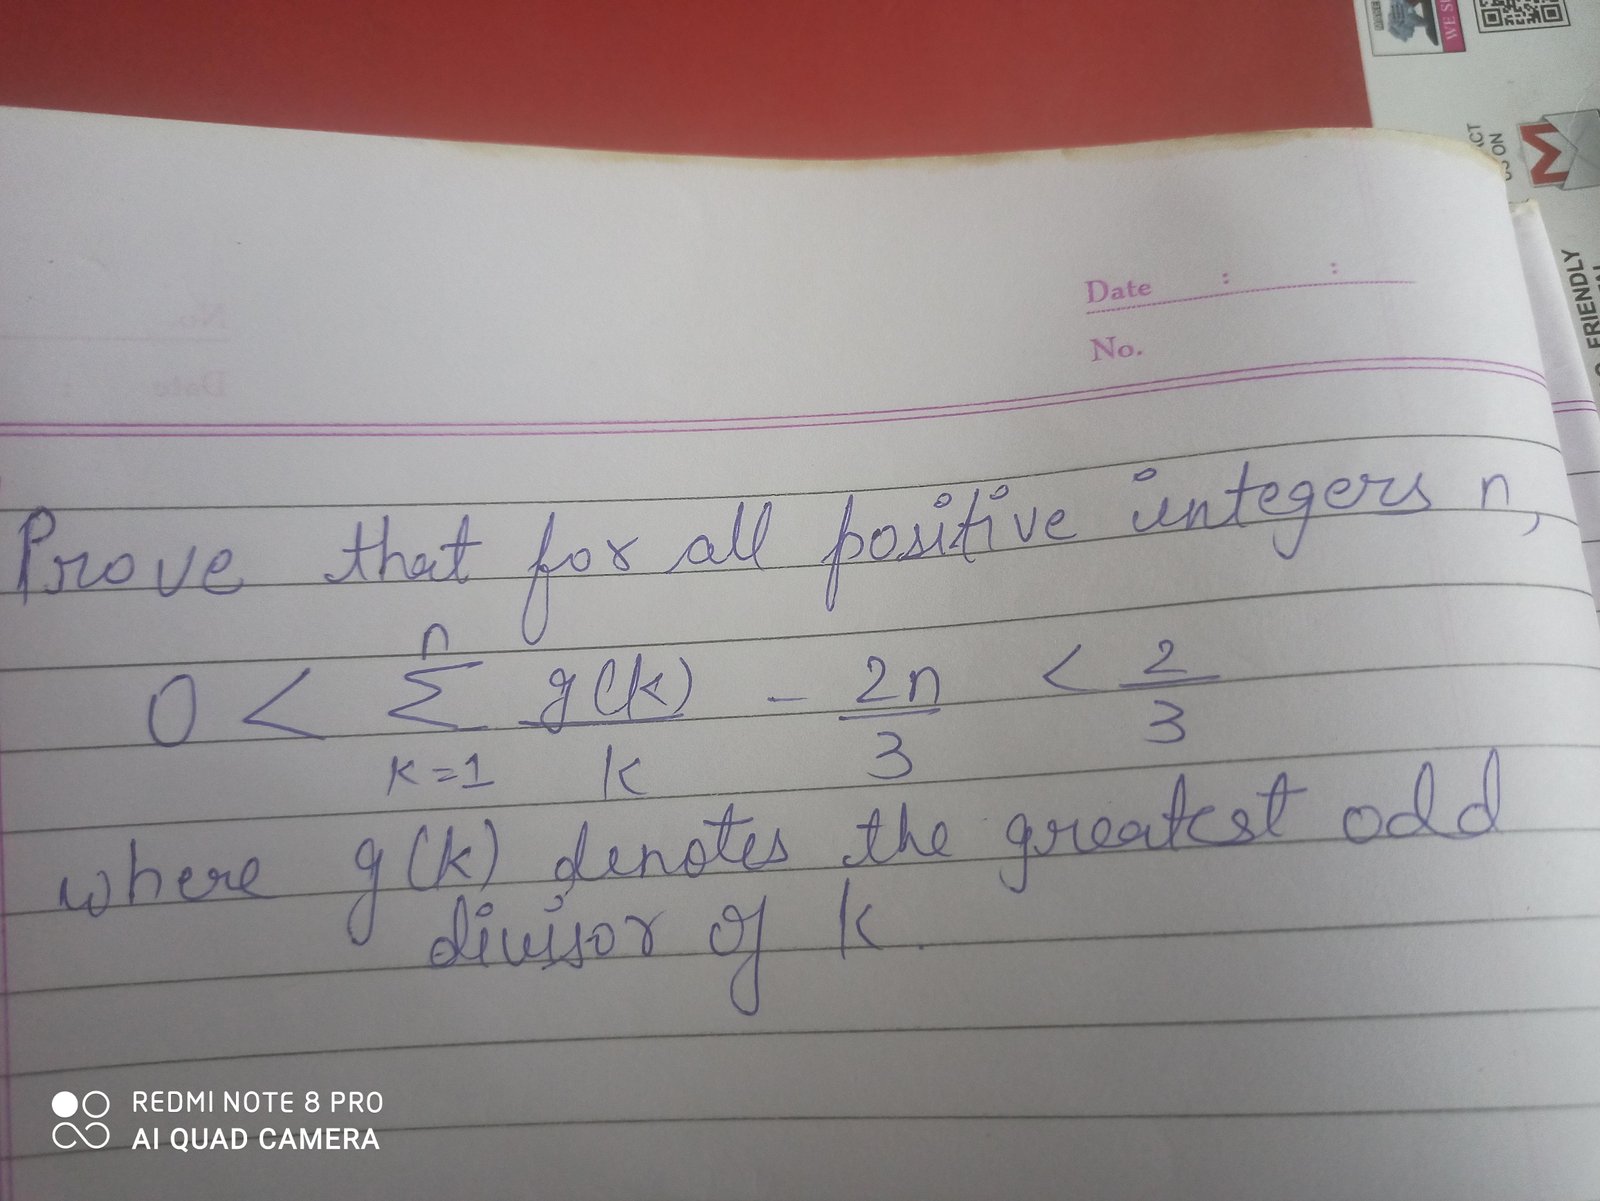 WE S
ACT
US ON
M
FRIENDLY
Date : :
No.
No.
Date :
Prove that for all positive integers n,
0 < \sum_{k=1}^{n} \frac{g(k)}{k} - \frac{2n}{3} < \frac{2}{3}
where g(k) denotes the greatest odd
divisor of k.
REDMI NOTE 8 PRO
AI QUAD CAMERA